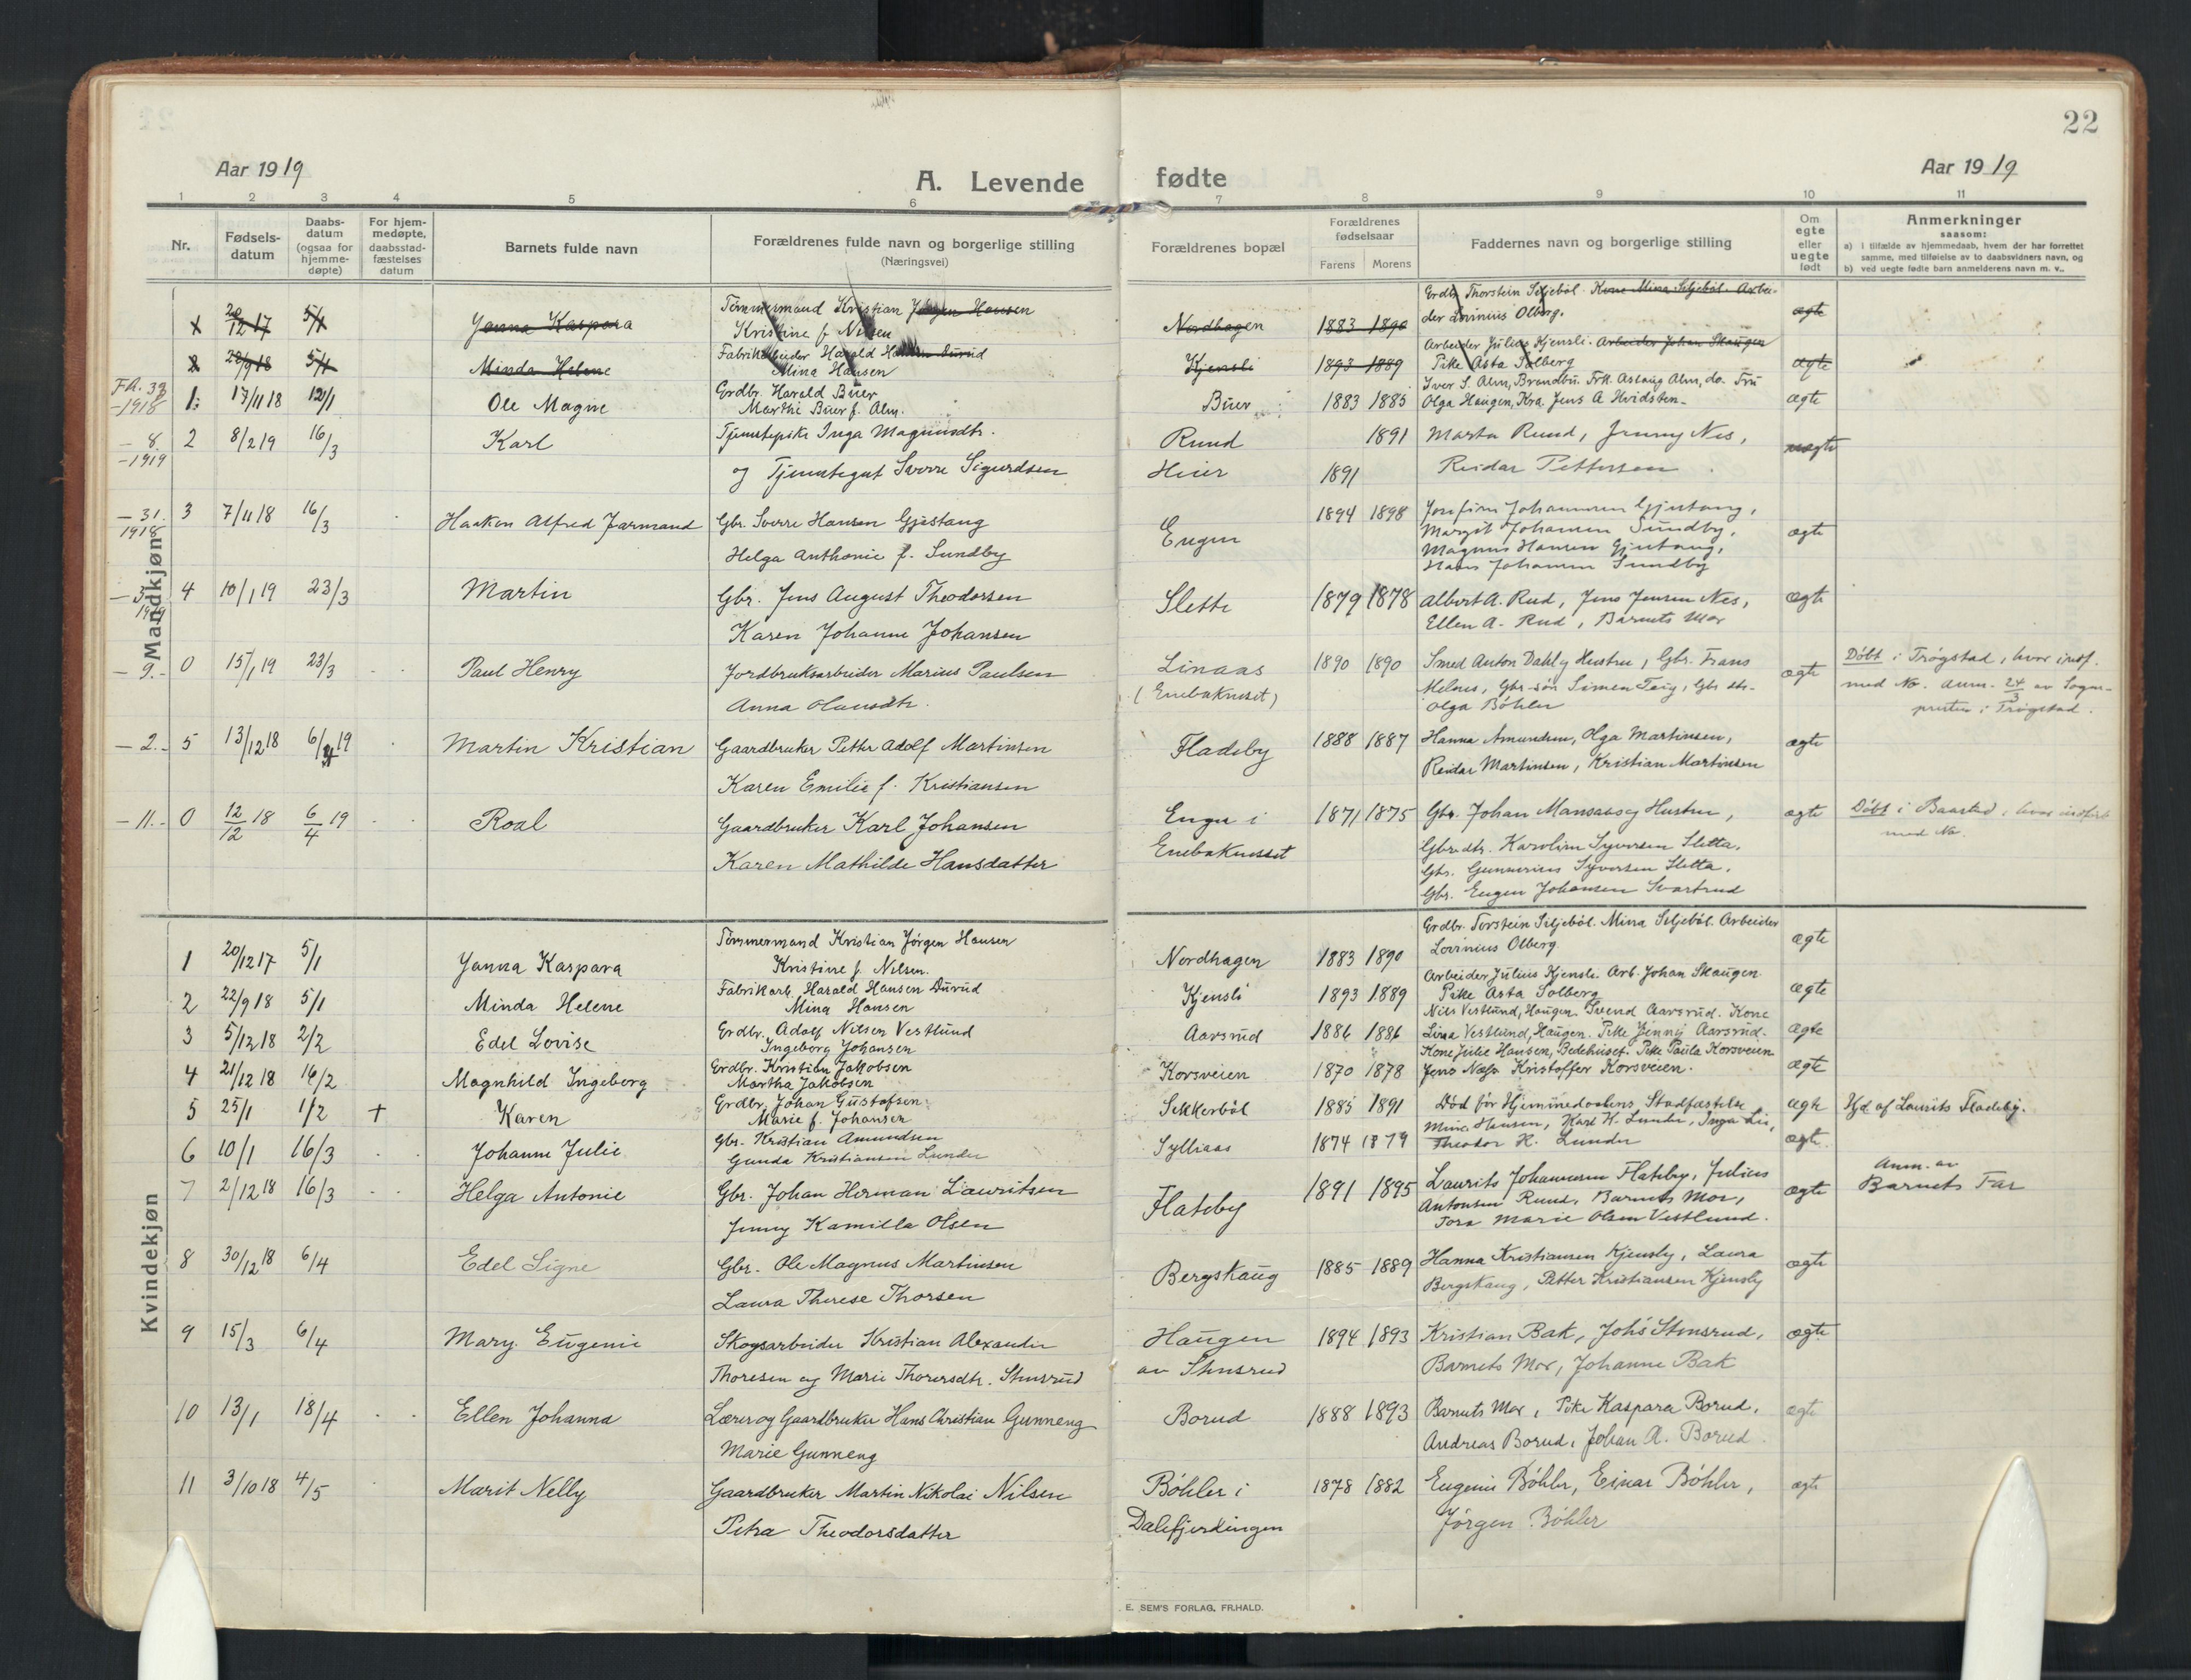 22
Aar 1919
A. Levende fødte
Aar 1919
1 2 3 4 5 6 7 8 9 10 11
Nr.
Fødsels-
datum
Daabs-
datum
(ogsaa for
hjemme-
døpte)
For hjem-
medøpte,
daabsstad-
fæstelses
datum
Barnets fulde navn
Forældrenes fulde navn og borgerlige stilling
(Næringsvei)
Forældrenes bopæl
Forældrenes
fødselsaar
Farens Morens
Faddernes navn og borgerlige stilling
Om
egte
eller
uegte
født
Anmerkninger
saasom:
a) i tilfælde av hjemmedaab, hvem der har forrettet
samme, med tilføielse av to daabsvidners navn, og
b) ved uegte fødte barn anmelderens navn m. v..
Mandkjøn
20/12 17 5/1 Janna Kaspara Tömmermand Kristian Jörgen Hansen Nordhagen 1883 1890 Grdbr. Thorstein Seljeböl. Kone Mina Seljeböl. Arbei-
Kristine f. Nilsen der Lovinius Olberg. ægte
2 22/9 18 5/1 Minda Helene Fabrikarbeider Harald Hansen Durud Kjensli 1893 1889 Arbeider Julius Kjensli. Arbeider Johan Skaugen
Mina Hansen Pike Asta Solberg ægte
FA. 32 -1918 1: 17/11 18 12/1 Ole Magne Grdbr. Harald Buer Buer 1883 1885 Iver S. Alm, Brandbu. Frk. Aslaug Alm, do. Fru
Marthe Buer f. Alm. Olga Haugen, Kra. Jens A Hvidsten - ægte
- 8. -1919 2 8/2 19 16/3 Karl Tjenestepike Inga Magnusdtr. Ruud 1891 Marta Ruud, Jenny Nes, uægte
og Tjenestegut Sverre Sigurdsen Heier 1891 Reidar Pettersen
- 31. 1918 3 7/11 18 16/3 Haakon Alfred Jarmand Gbr. Sverre Hansen Gjestang Engen 1894 1898 Josefine Johannesen Gjestang,
Helga Anthonie f. Sundby Margit Johansen Sundby, ægte
Magnus Hansen Gjestang,
Hans Johansen Sundby
1919 4 10/1 19 23/3 Martin Gbr. Jens August Theodorsen Slette 1879 1878 Albert A. Rud, Jens Jensen Nes, ægte
Karen Johanne Johansen Ellen A. Rud, Barnets Mor
- 9. - 0 15/1 19 23/3 Paul Henry Jordbruksarbeider Marius Paulsen Linaas 1890 1890 Smed Anton Dahl og Hustru, Gbr. Frans ægte Döbt i Trögstad, hvor indf.
Anna Olausdtr. (Enebakneset) Melnes, Gbr-sön Simen Teig, Gbr dtr. med No. Anm. 24/3 av Sogne-
Olga Böhler presten i Trögstad.
- 2. - 5 13/12 18 6/4 19 Martin Kristian Gaardbruker Petter Adolf Martinsen Fladeby 1888 1887 Hanna Amundsen, Olga Martinsen, ægte
Karen Emilie f. Kristiansen Reidar Martinsen, Kristian Martinsen
- 11. - 0 12/12 18 6/4 19 Roal Gaardbruker Karl Johansen Engen i 1871 1875 Gbr. Johan Mansaas og Hustru, ægte Döbt i Baastad, hvor indfört
Karen Mathilde Hansdatter Enebaknesset Gbr.dtr. Karoline Syversen Sletta, med No.
Gbr. Gunnerius Syversen Sletta.
Gbr. Eugen Johansen Svartrud
Kvindekjøn
1 20/12 17 5/1 Janna Kaspara Tömmermand Kristian Jörgen Hansen Nordhagen 1883 1890 Grdbr. Torstein Seljeböl. Mina Seljeböl. Arbeider
Kristine f. Nilsen. Lovinius Olberg. ægte
2 22/9 18 5/1 Minda Helene Fabrikarb. Harald Hansen Durud Kjensli 1893 1889 Arbeider Julius Kjensli. Arb. Johan Skaugen.
Mina Hansen Pike Asta Solberg ægte
3 5/12 18 2/2 Edel Lovise Grdbr. Adolf Nilsen Vestlund Aarsrud 1886 1886 Nils Vestlund, Haugen. Svend Aarsrud. Kone
Ingeborg Johansen Lina Vestlund, Haugen. Pike Jenny Aarsrud. ægte
4 21/12 18 16/2 Magnhild Ingeborg Grdbr. Kristian Jakobsen Korsveien 1870 1878 Kone Julie Hansen, Bedehuset. Pike Paula Korsveien
Martha Jakobsen Jens Næss Kristoffer Korsveien. ægte
5 25/1 1/2 + Karen Grdbr. Johan Gustafsen Sekkeröl 1885 1891 Död för Hjemmedaabens Stadfæstelse ægte Hjd. af Laurits Fladeby.
Marie f. Johansen
6 10/1 16/3 Johanne Julie Gbr. Kristian Amundsen Sylliaas 1874 1879 Mina Hansen, Karl H. Lunder, Inga Lie,
Gunda Kristiansen Lunder Theodor H. Lunder ægte.
7 2/12 18 16/3 Helga Antonie Gbr. Johan Herman Lauritsen Flateby 1891 1895 Laurits Johannesen Flateby, Julius ægte Anm. av
Jenny Kamilla Olsen Antonsen Ruud, Barnets Mor, Barnets Far
Tora Marie Olsen Vestlund.
8 30/12 18 6/4 Edel Signe Gbr. Ole Magnus Martinsen Bergskaug 1885 1889 Hanna Kristiansen Kjensby, Laura ægte
Laura Therese Thorsen Bergskaug, Petter Kristiansen Kjensby
9 15/3 6/4 Mary Eugenie Skogsarbeider Kristian Alexander Haugen 1894 1893 Kristian Bak, Johs Stensrud, ægte
Thoresen og Marie Thorersdtr. Stensrud av Stensrud Barnets Mor, Johanne Bak
10 13/1 18/4 Ellen Johanna Lærer og Gaardbruker Hans Christian Gunneng Borud 1888 1893 Barnets Mor, Pike Kaspara Borud, ægte
Marie Gunneng Andreas Borud, Johan A. Borud.
11 3/10 18 4/5 Marit Nelly Gaardbruker Martin Nikolai Nilsen Böhler i 1878 1882 Eugenie Böhler, Einar Böhler, ægte
Petra Theodorsdatter Dalefjerdingen Jörgen Böhler
E. SEM'S FORLAG, FR.HALD.